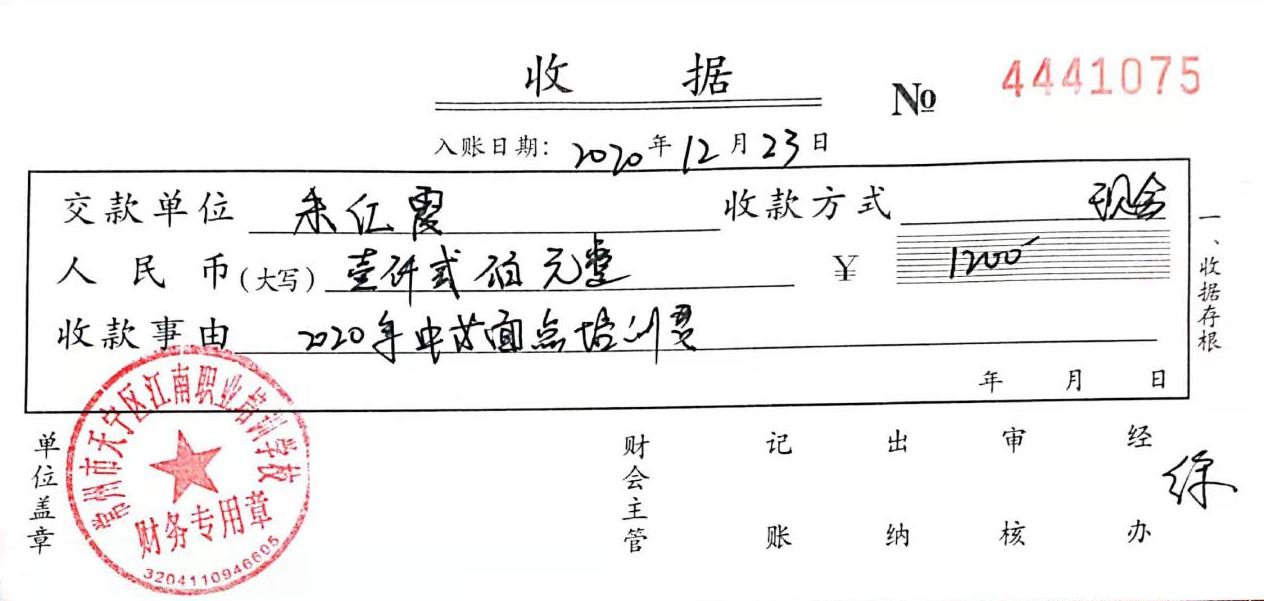 收据
№ 4441075
入账日期：2020年12月23日
交款单位 朱红霞 收款方式 现金
人民币(大写) 壹仟贰佰元整 ￥ 1200
收款事由 2020年中式面点培训费
年 月 日
一、收据存根
单位盖章
财会主管 记账 出纳 审核 经办 徐
常州市天宁区江南职业培训学校
财务专用章
3204110946605